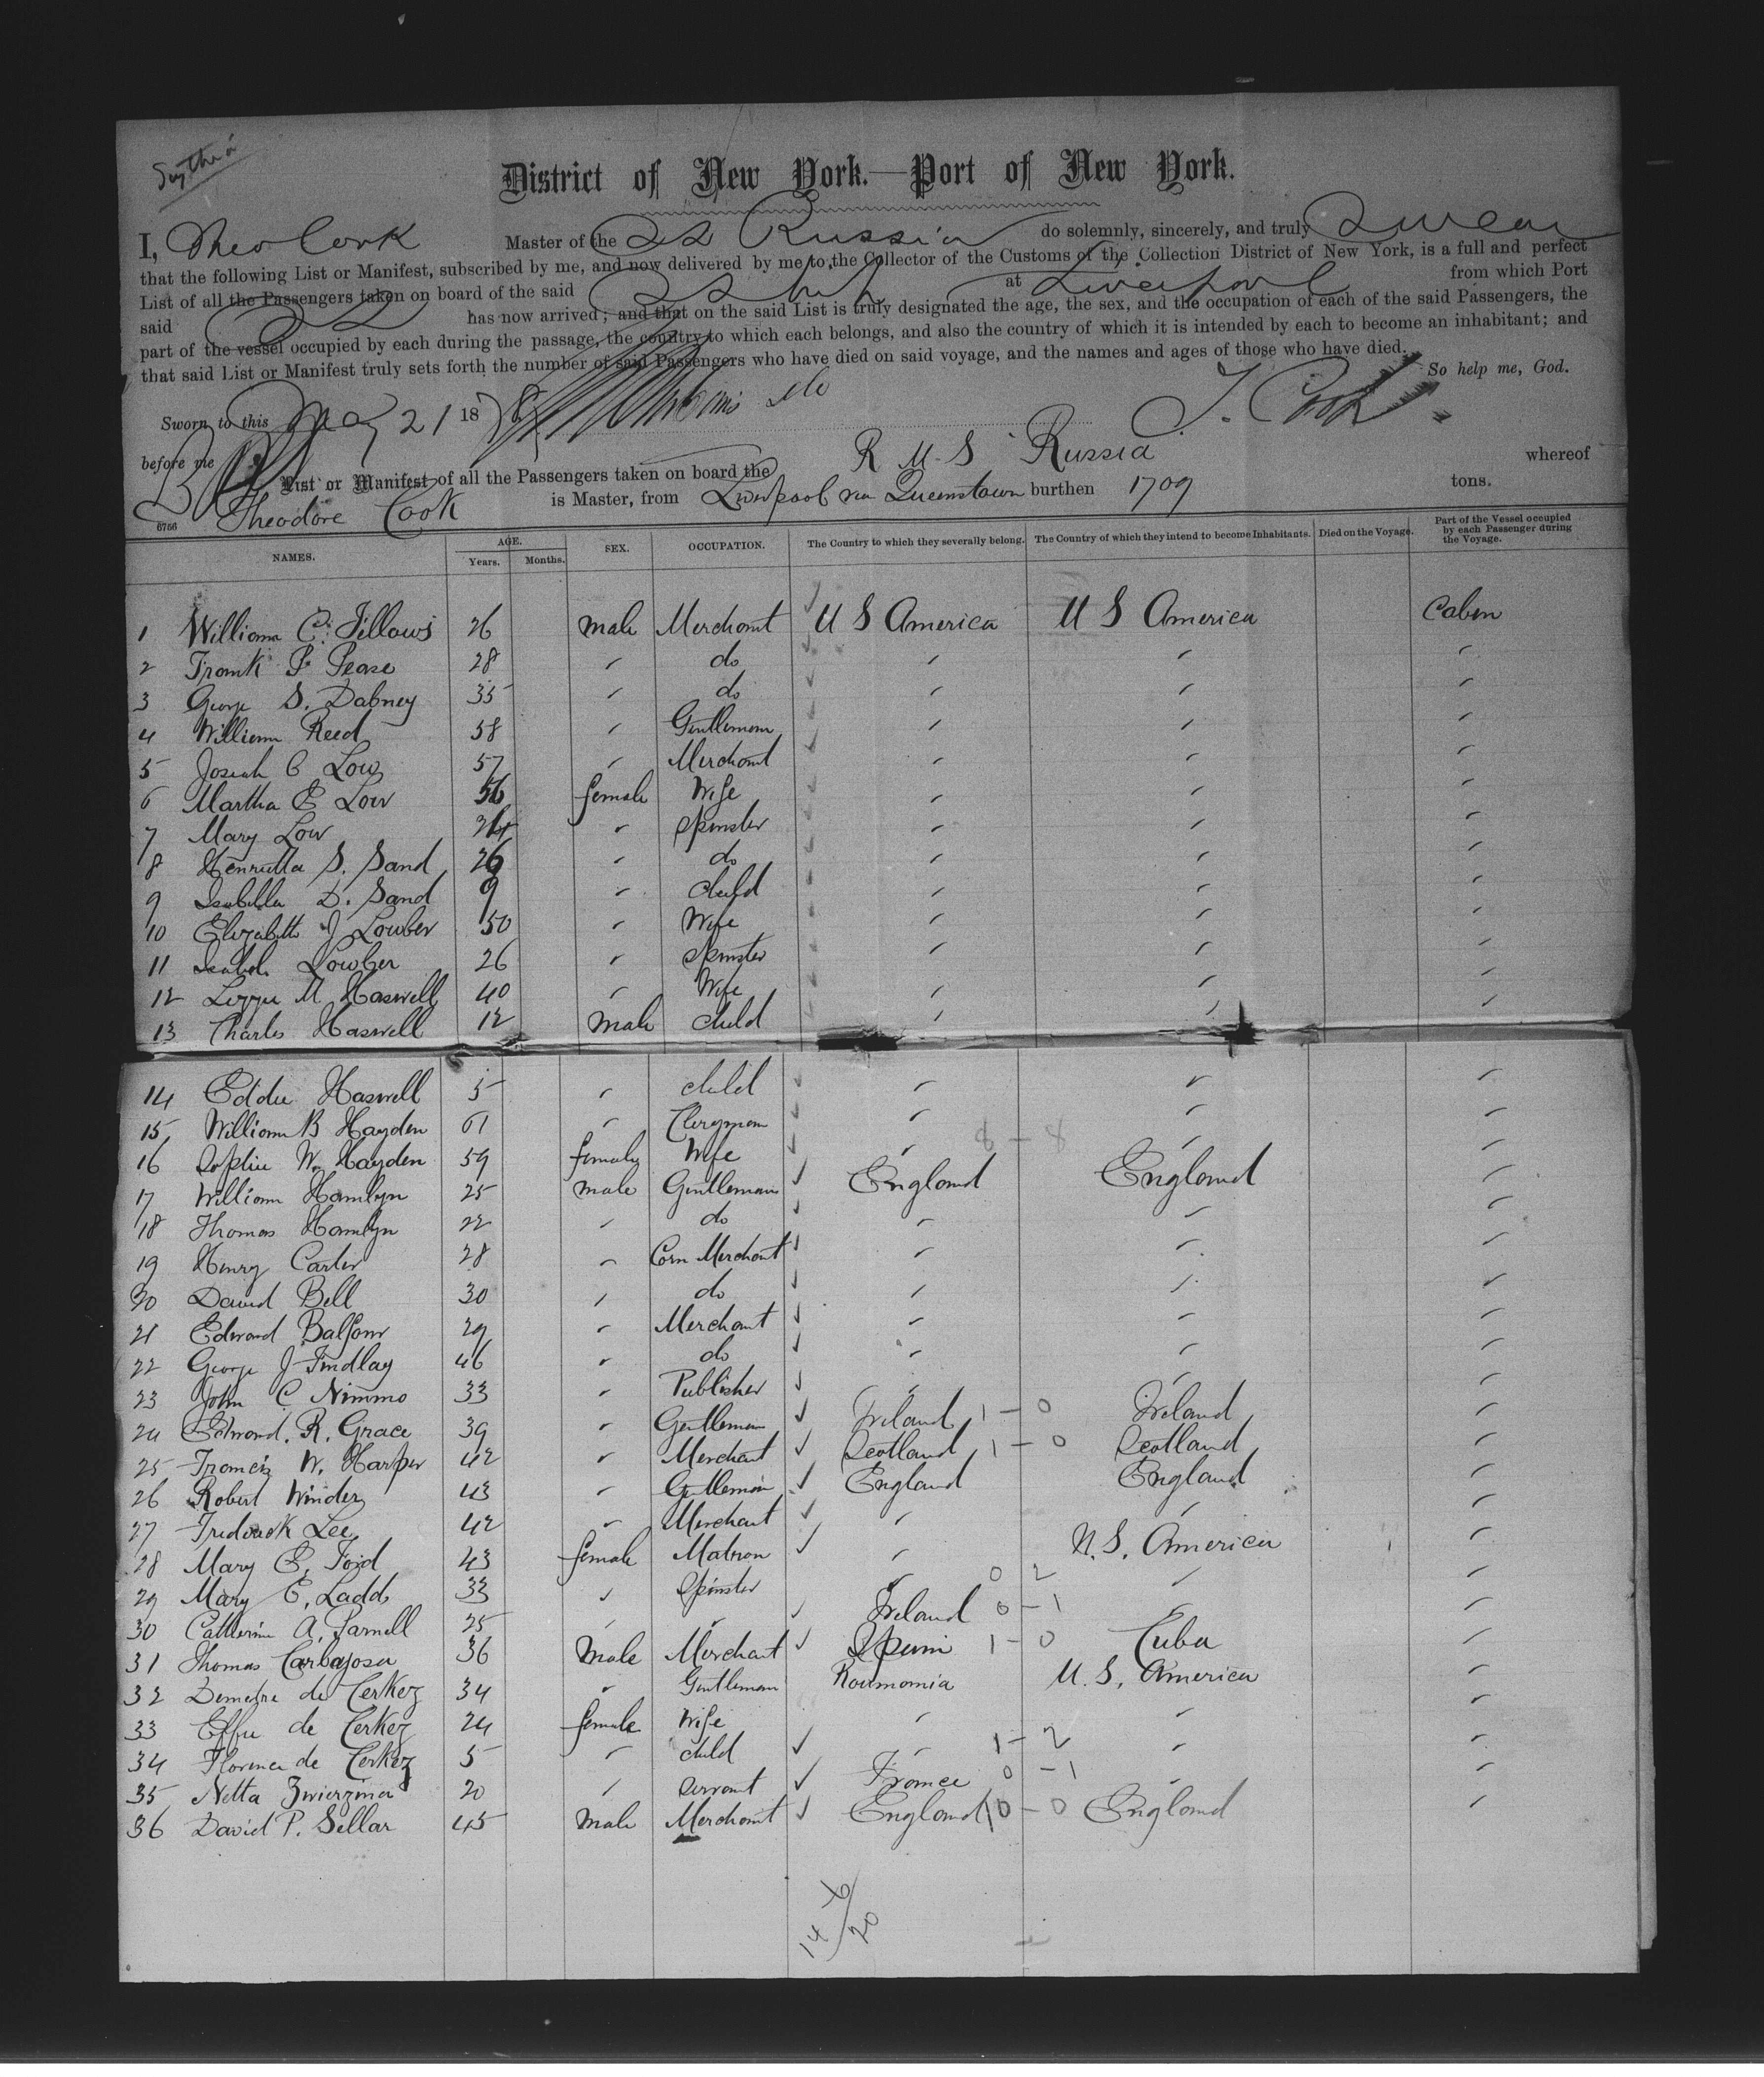 Scythia
District of New York.—Port of New York.
I, Theo Cook Master of the SS Russia do solemnly, sincerely, and truly Swear
that the following List or Manifest, subscribed by me, and now delivered by me to the Collector of the Customs of the Collection District of New York, is a full and perfect
List of all the Passengers taken on board of the said at Liverpool from which Port
said has now arrived; and that on the said List is truly designated the age, the sex, and the occupation of each of the said Passengers, the
part of the vessel occupied by each during the passage, the country to which each belongs, and also the country of which it is intended by each to become an inhabitant; and
that said List or Manifest truly sets forth the number of said Passengers who have died on said voyage, and the names and ages of those who have died.
So help me, God.
Sworn to this May 21 1878 T. Cook
before me
List or Manifest of all the Passengers taken on board the R M S Russia whereof
Theodore Cook is Master, from Liverpool via Queenstown burthen 1709 tons.
6756
NAMES. AGE. Years. Months. SEX. OCCUPATION. The Country to which they severally belong. The Country of which they intend to become Inhabitants. Died on the Voyage. Part of the Vessel occupied by each Passenger during the Voyage.
1 William C. Fellows 26 male Merchant U S America U S America Cabin
2 Frank P Pease 28 " do " " "
3 George S. Dabney 35 " do " " "
4 William Reed 58 " Gentleman " " "
5 Josiah O Low 57 " Merchant " " "
6 Martha E Low 56 female Wife " " "
7 Mary Low 24 " Spinster " " "
8 Henrietta S. Sand 26 " do " " "
9 Isabella D. Sand 9 " child " " "
10 Elizabeth J Lowber 50 " Wife " " "
11 Isabel Lowber 26 " Spinster " " "
12 Lizzie M Haswell 40 " Wife " " "
13 Charles Haswell 12 male child " " "
14 Eddie Haswell 5 " child " " "
15 William B Hayden 61 " Clergyman " " "
16 Sophie W. Hayden 59 female Wife " 8 - 8 " "
17 William Hamlyn 25 male Gentleman England England "
18 Thomas Hamlyn 22 " do " " "
19 Henry Carter 28 " Corn Merchant " " "
20 David Bell 30 " do " " "
21 Edward Balfour 29 " Merchant " " "
22 George J Findlay 46 " do " " "
23 John C Nimmo 33 " Publisher " " "
24 Edmond. R. Grace 39 " Gentleman Ireland 1 - 0 Ireland "
25 Francis W. Harper 42 " Merchant Scotland 1 - 0 Scotland "
26 Robert Winder 43 " Gentleman England England "
27 Frederick Lee 42 " Merchant " " "
28 Mary E. Ford 43 female Matron " U. S. America "
29 Mary E. Ladd 33 " Spinster " 0 2 " "
30 Catherine A. Parnell 25 " " Ireland 0 - 1 " "
31 Thomas Carbajosa 36 Male Merchant Spain 1 - 0 Cuba "
32 Demetre de Cerkez 34 " Gentleman Roumania U. S. America "
33 Effie de Cerkez 24 female Wife " " "
34 Florence de Cerkez 5 " child " 1 - 2 " "
35 Netta Zwierzina 20 " Servant France 0 - 1 " "
36 David P. Sellar 45 male Merchant England 10 - 0 England "
14 6
20